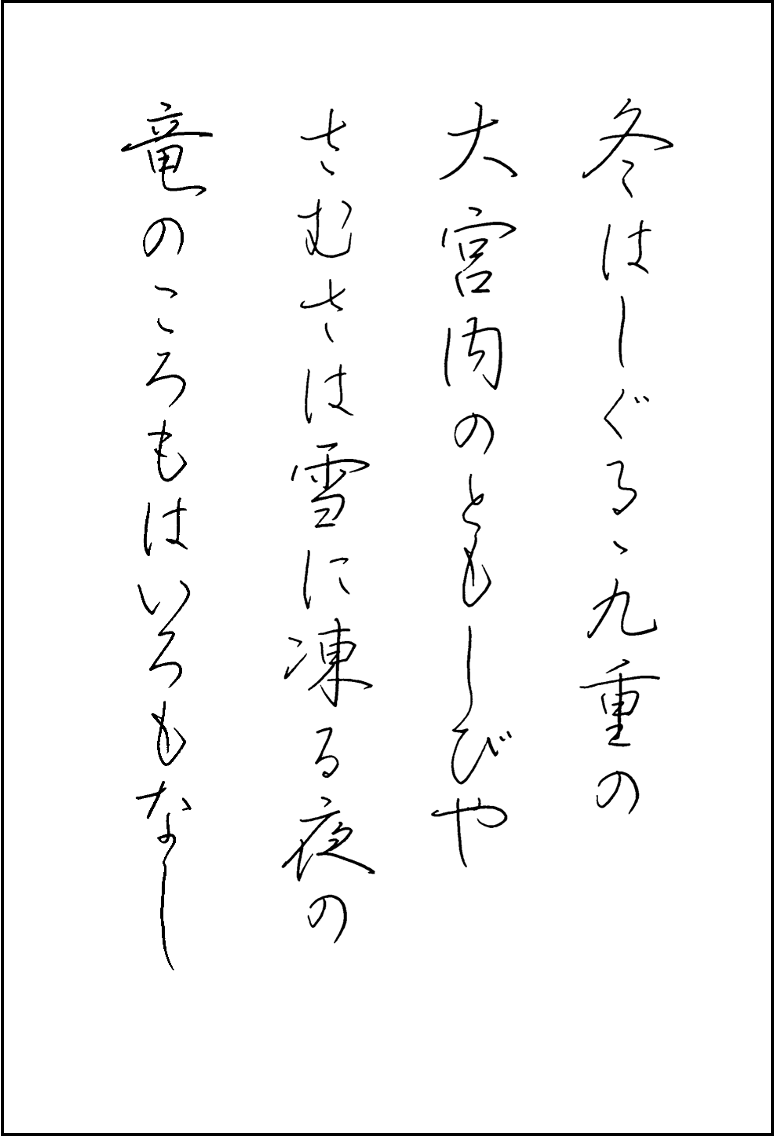 冬はしぐるゝ九重の
大宮内のともしびや
さむさは雪に凍る夜の
竜のころもはいろもなし